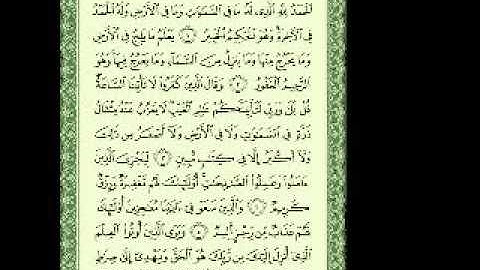 ٱلْحَمْدُ لِلَّهِ ٱلَّذِى لَهُۥ مَا فِى ٱلسَّمَٰوَٰتِ وَمَا فِى ٱلْأَرْضِ وَلَهُ ٱلْحَمْدُ
فِى ٱلْءَاخِرَةِ وَهُوَ ٱلْحَكِيمُ ٱلْخَبِيرُ ١ يَعْلَمُ مَا يَلِجُ فِى ٱلْأَرْضِ
وَمَا يَخْرُجُ مِنْهَا وَمَا يَنزِلُ مِنَ ٱلسَّمَآءِ وَمَا يَعْرُجُ فِيهَا وَهُوَ
ٱلرَّحِيمُ ٱلْغَفُورُ ٢ وَقَالَ ٱلَّذِينَ كَفَرُوا۟ لَا تَأْتِينَا ٱلسَّاعَةُ
قُلْ بَلَىٰ وَرَبِّى لَتَأْتِيَنَّكُمْ عَٰلِمِ ٱلْغَيْبِ لَا يَعْزُبُ عَنْهُ مِثْقَالُ
ذَرَّةٍ فِى ٱلسَّمَٰوَٰتِ وَلَا فِى ٱلْأَرْضِ وَلَآ أَصْغَرُ مِن ذَٰلِكَ
وَلَآ أَكْبَرُ إِلَّا فِى كِتَٰبٍ مُّبِينٍ ٣ لِّيَجْزِىَ ٱلَّذِينَ
ءَامَنُوا۟ وَعَمِلُوا۟ ٱلصَّٰلِحَٰتِ أُو۟لَٰٓئِكَ لَهُم مَّغْفِرَةٌ وَرِزْقٌ
كَرِيمٌ ٤ وَٱلَّذِينَ سَعَوْ فِىٓ ءَايَٰتِنَا مُعَٰجِزِينَ أُو۟لَٰٓئِكَ
لَهُمْ عَذَابٌ مِّن رِّجْزٍ أَلِيمٌ ٥ وَيَرَى ٱلَّذِينَ أُوتُوا۟ ٱلْعِلْمَ
ٱلَّذِىٓ أُنزِلَ إِلَيْكَ مِن رَّبِّكَ هُوَ ٱلْحَقَّ وَيَهْدِىٓ إِلَىٰ صِرَٰطِ